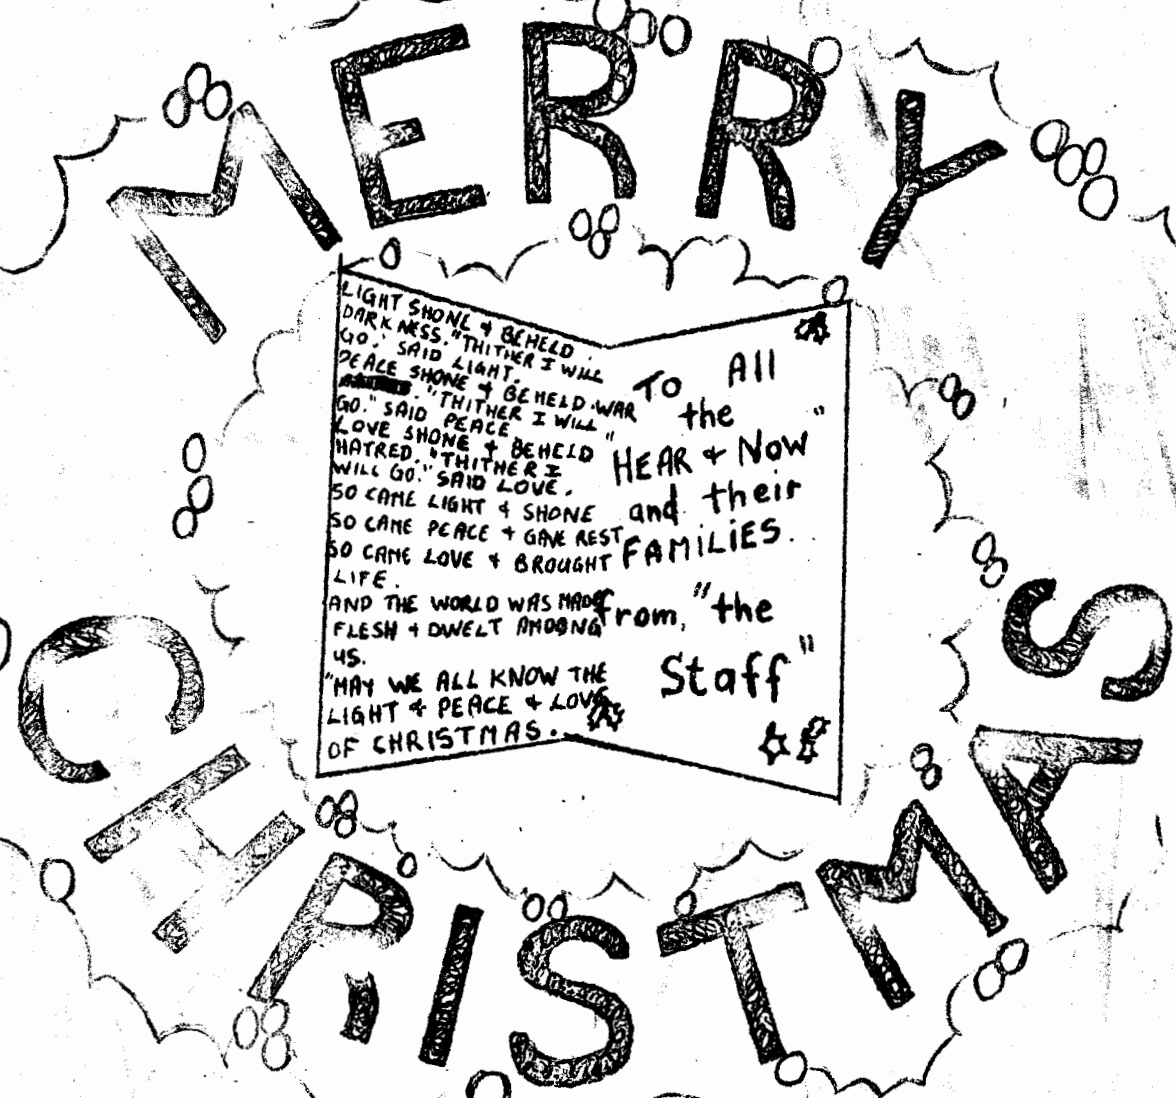 MERRY
LIGHT SHONE & BEHELD.
DARKNESS. "THITHER I WILL
GO." SAID LIGHT.
PEACE SHONE & BEHELD WAR
. "THITHER I WILL
GO." SAID PEACE "
LOVE SHONE & BEHELD
HATRED. "THITHER I
WILL GO." SAID LOVE.
SO CAME LIGHT & SHONE
SO CAME PEACE & GAVE REST
SO CAME LOVE & BROUGHT
LIFE.
AND THE WORLD WAS MADE
FLESH & DWELT AMOONG
US.
"MAY WE ALL KNOW THE
LIGHT & PEACE & LOVE
OF CHRISTMAS.
To All
the "
HEAR & NOW"
and their
FAMILIES.
from, "the
Staff"
CHRISTMAS